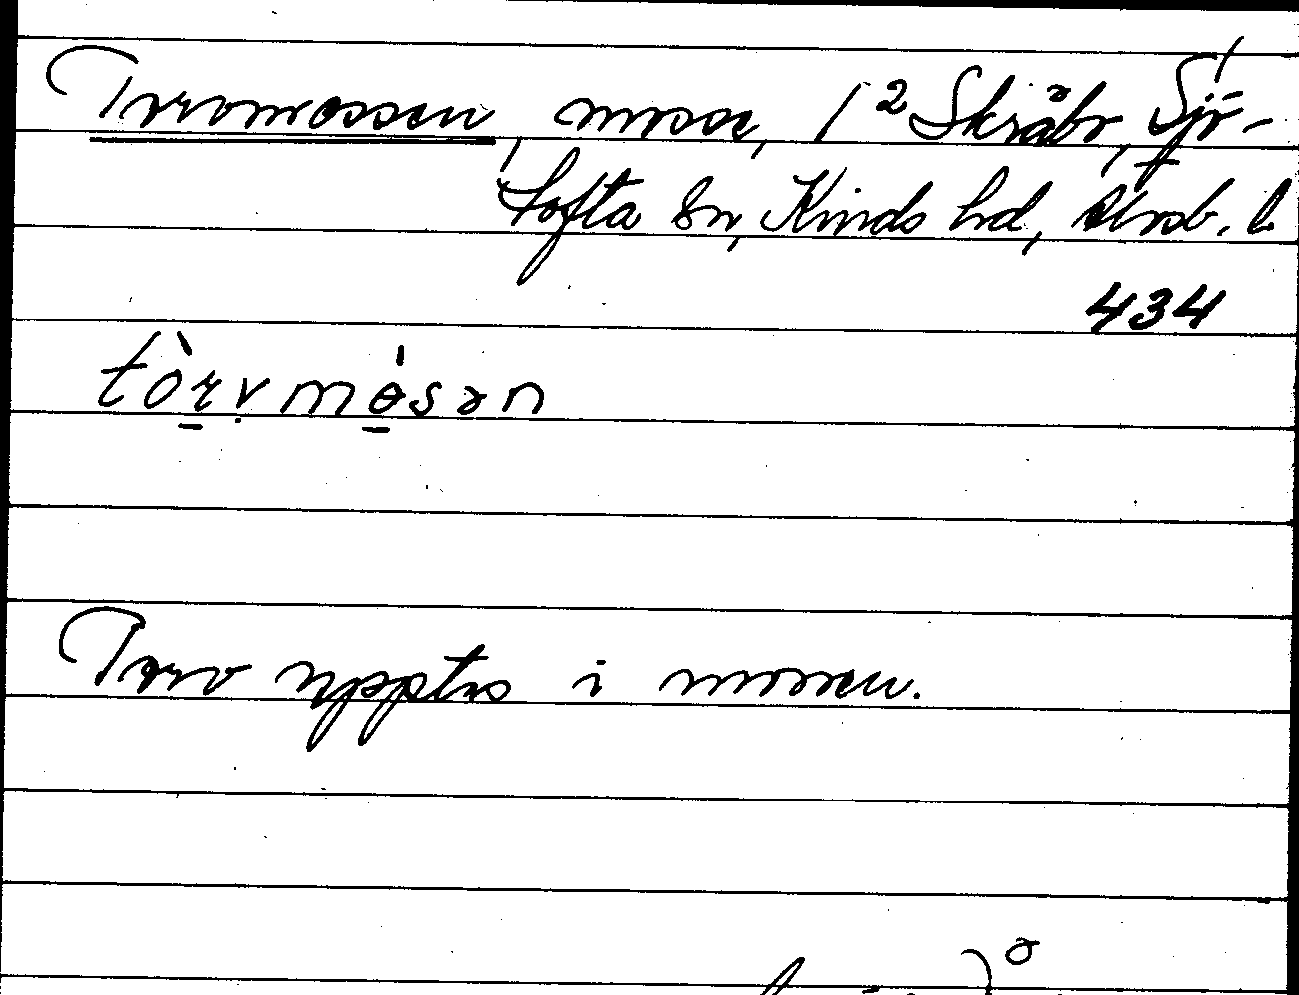 Torvmossen, mosse, 1 2 Skräbo, Sjö-
tofta sn, Kinds hd, Älvsb. l.
434
tòrvmósən
Torv upptas i mossen.